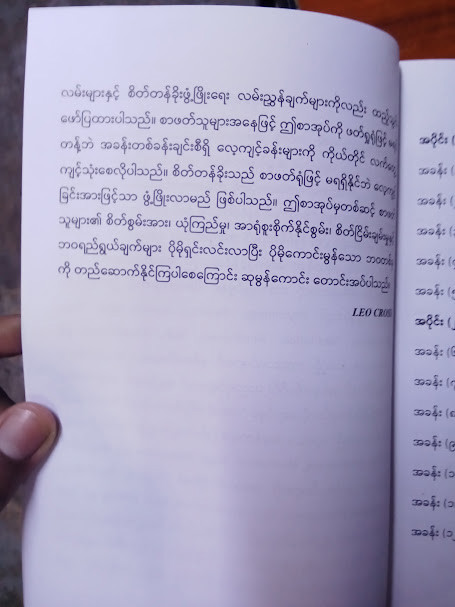 လမ်းများနှင့် စိတ်တန်ခိုးဖွံ့ဖြိုးရေး လမ်းညွှန်ချက်များကိုလည်း
ဖော်ပြထားပါသည်။ စာဖတ်သူများအနေဖြင့် ဤစာအုပ်ကို ဖတ်ရှုရုံဖြင့်
တန့်ဘဲ အခန်းတစ်ခန်းချင်းစီရှိ လေ့ကျင့်ခန်းများကို ကိုယ်တိုင်
ကျင့်သုံးစေလိုပါသည်။ စိတ်တန်ခိုးသည် စာဖတ်ရုံဖြင့် မရရှိနိုင်ဘဲ
ခြင်းအားဖြင့်သာ ဖွံ့ဖြိုးလာမည် ဖြစ်ပါသည်။ ဤစာအုပ်မှတစ်ဆင့်
သူများ၏ စိတ်စွမ်းအား၊ ယုံကြည်မှု၊ အာရုံစူးစိုက်နိုင်စွမ်း၊
ဘဝရည်ရွယ်ချက်များ ပိုမိုရှင်းလင်းလာပြီး ပိုမိုကောင်းမွန်သော
ကို တည်ဆောက်နိုင်ကြပါစေကြောင်း ဆုမွန်ကောင်း တောင်းအပ်ပါသည်။
LEO
အပိုင်း
အခန်း
အခန်း
အခန်း
အခန်း
အခန်း
အပိုင်း
အခန်း
အခန်း
အခန်း
အခန်း
အခန်း
အခန်း
အခန်း